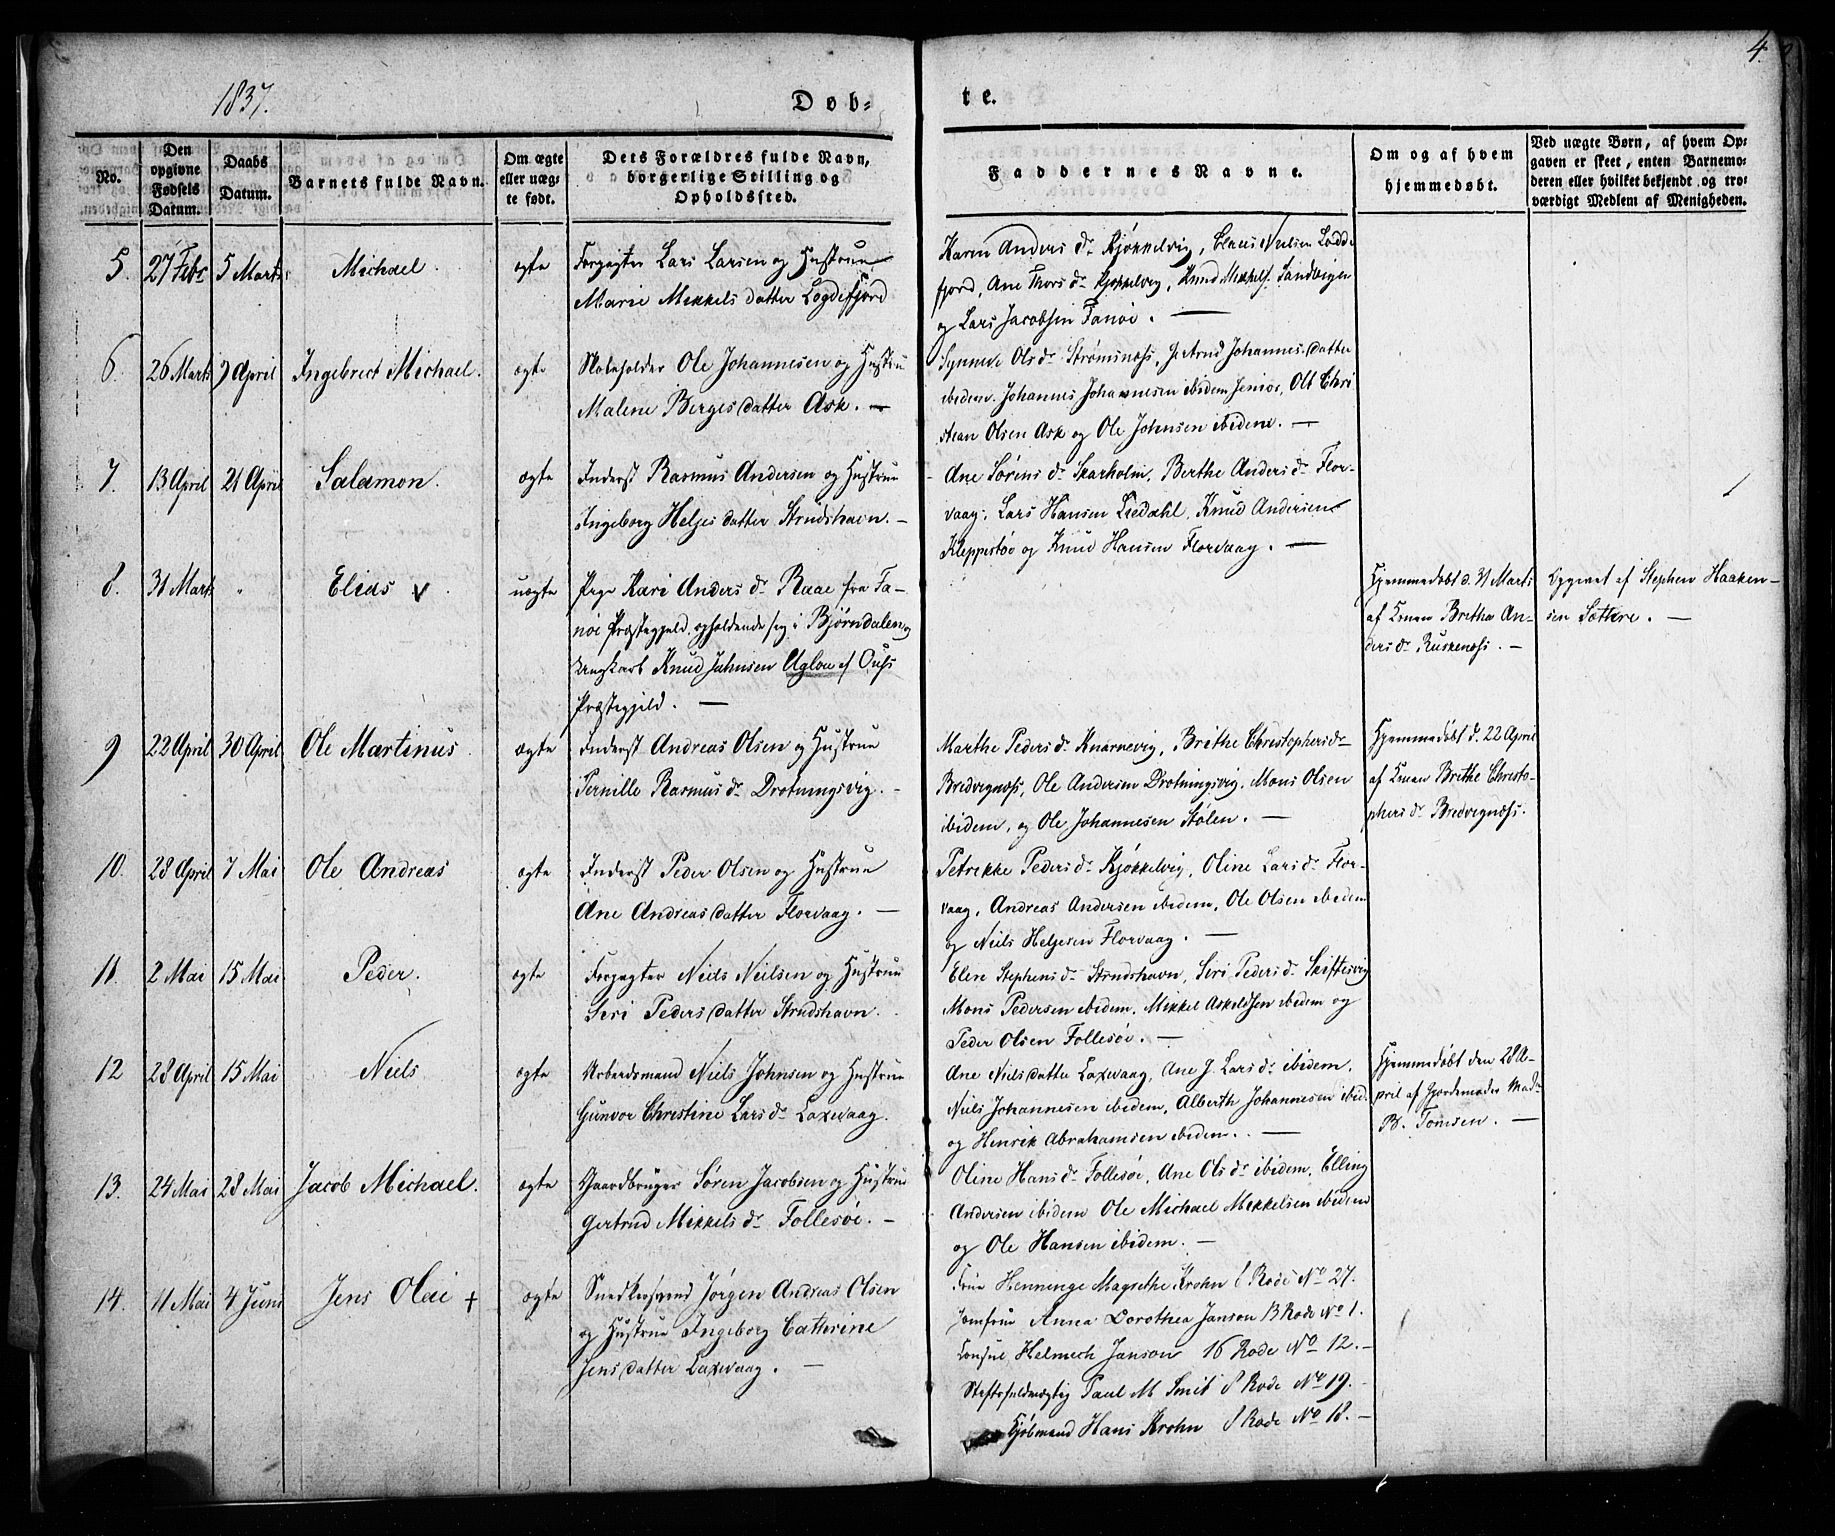 4.
1837.
Døb-
te.
No.
Den opgivne Fødsels Datum.
Daabs Datum.
Barnets fulde Navn.
Om ægte eller uægte født.
Dets Forældres fulde Navn, borgerlige Stilling og Opholdssted.
Faddernes Navne.
Om og af hvem hjemmedøbt.
Ved uægte Børn, af hvem Opgaven er skeet, enten Barnemoderen eller hvilket bekjendt og troværdigt Medlem af Menigheden.
5. 27 Febr 5 Marts Michael. ægte
Forpagter Lars Larsen og Hustrue
Marie Mikkels datter Loddefjord
Karen Anders dr Kjøkkelvig, Claus Nielsen Lodde-
fjord, Ane Thors dr Kjøkkelvig, Knud Mikkels. Sandvigen
og Lars Jacobsen Fanøe. —
6. 26 Marts 9 April Ingebrect Michael. ægte
Ole Johannesen og Hustru
Malene Berges datter Ask. —
Synneve Ols dr Strømsnæss, Gertrud Johannes datter
ibidem. Johannes Johannesen ibidem Jenior, Ole Chri
stian Olsen Ask og Ole Johnsen ibidem. —
7. 13 April 21 April Salamon. ægte
Inderst Rasmus Andersen og Hustrue
Ingeborg Helges datter Strudshavn. —
Ane Sørens dr Skarholm, Berthe Anders dr Flor-
vaag, Lars Hansen Liedahl, Knud Andersen
Kleppestøe og Knud Hansen Florvaag. —
8. 31 Marts " Elias v. uægte
Pige Kari Anders dr Raae fra Fa-
nøe Præstegjeld, opholdende sig i Bjørndalen og
Ungkarl Knud Johnsen Uglou af Ouss
Præstegjeld. —
Hjemmedøbt d. 31 Marts
af Konen Brithe An-
ders dr Ruskenæss. —
Opgivet af Stephen Haaken-
sen Sættre. —
9 22 April 30 April Ole Martinus ægte
Inderst Andreas Olsen og Hustrue
Pernille Rasmus dr Drotningsvig. —
Marthe Peders dr Knarrevig, Brithe Christophers dr
Bredvignæss, Ole Andersen Drotningsvig, Mons Olsen
ibidem, og Ole Johannesen Stølen. —
Hjemmedøbt d. 22 April
af Konen Brithe Christo-
phers dr Bredvignæss.
10. 28 April 7 Mai Ole Andreas ægte
Inderst Peder Olsen og Hustrue
Ane Andreas datter Florvaag. —
Petrikke Peders dr Kjøkkelvig, Oline Lars dr Flor-
vaag, Andreas Andersen ibidem, Ole Olsen ibidem
og Niels Helgesen Florvaag. —
11. 2 Mai 15 Mai Peder. ægte
Forpagter Niels Nielsen og Hustrue
Siri Peders datter Strudshavn.
Elen Stephens dr Strudshavn, Siri Peders dr Skiftesvig
Mons Pedersen ibidem, Mikkel Askeldsen ibidem og
Peder Olsen Follesøe. —
12 28 April 15 Mai Niels ægte
Arbeidsmand Niels Johnsen og Hustrue
Gunvor Christine Lars dr Laxevaag.
Ane Niels datter Laxevaag, Ane J. Lars dr ibidem.
Niels Johannesen ibidem, Alberth Johannesen ibid.
og Henrik Abrahamsen ibidem. —
Hjemmedøbt den 28 A-
pril af Jordemoder Mad.
B. Tomsen. —
13. 24 Mai 28 Mai Jacob Michael. ægte
Gaardbruger Søren Jacobsen og Hustrue
Gertrud Mikkels dr Follesøe. —
Oline Hans dr Follesøe, Ane Ols dr ibidem, Elling
Andersen ibidem Ole Michael Mikkelsen ibidem
og Ole Hansen ibidem. —
14. 11 Mai 4 Juni Jens Olai + ægte
Snedkersvend Jørgen Andreas Olsen
og Hustrue Ingeborg Cathrine
Jens datter Laxevaag. —
Frue Henninge Magrethe Krohn 8 Rode No 27.
Jomfrue Anna Dorothea Janson 13 Rode No 1.
Consul Helmech Janson 16 Rode No 12. —
Paul M Smit 8 Rode No 19. —
Kjøbmand Hans Krohn 8 Rode No 18. —